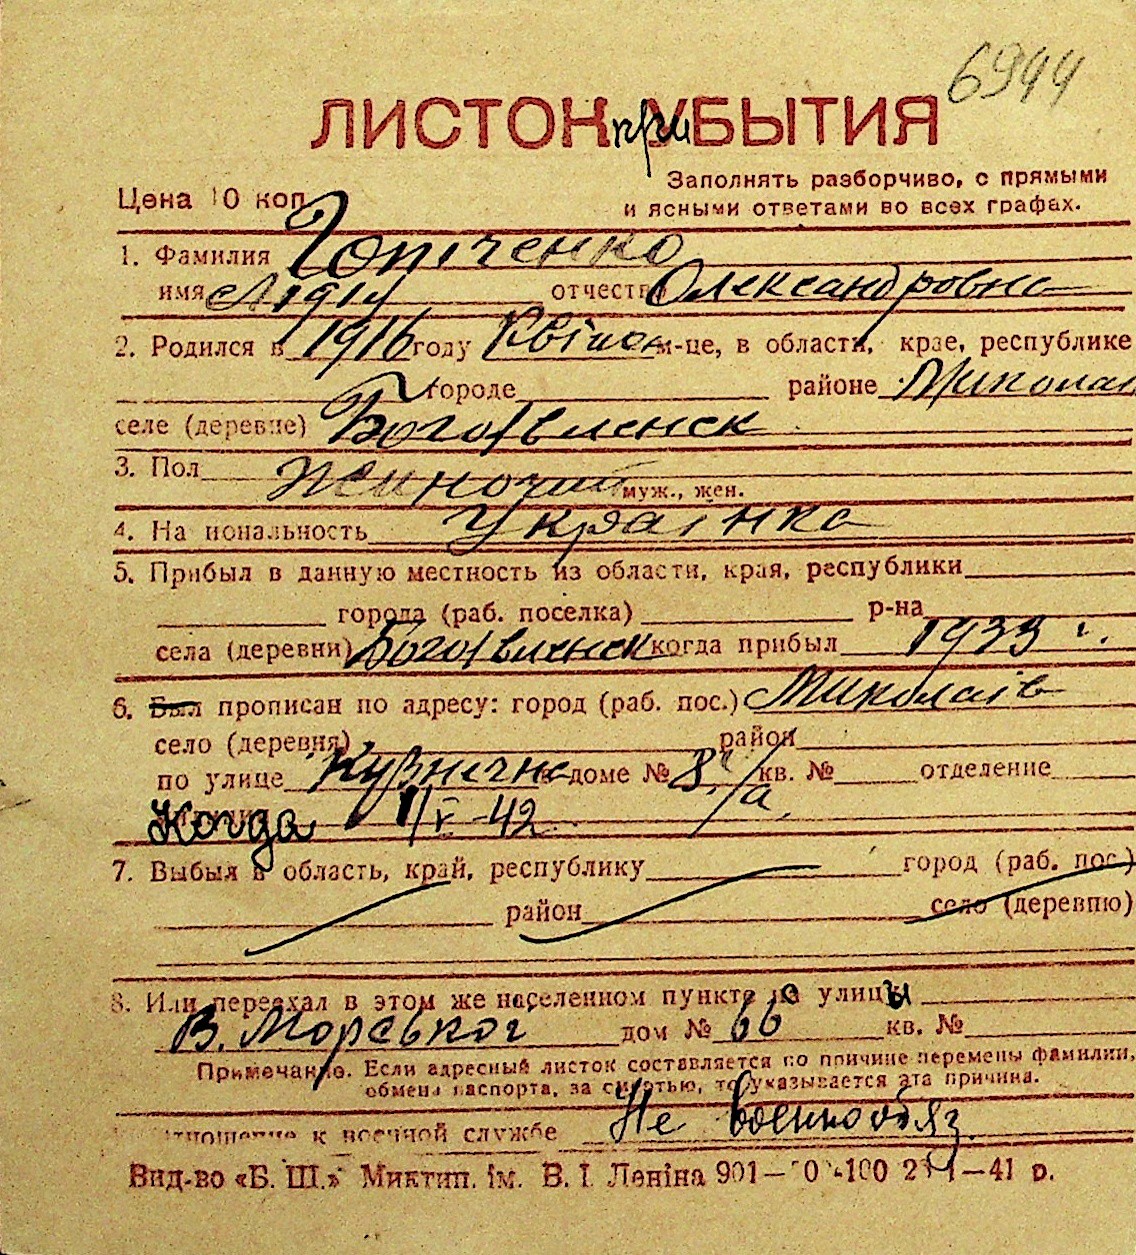 6944
ЛИСТОК при УБЫТИЯ
Заполнять разборчиво, с прямыми
Цена 10 коп.
и ясными ответами во всех графах.
1. Фамилия Готіченко
имя отчество Олександровна
2. Родился в 1916 году м-це, в области, крае, республике
городе районе Миколаї
селе (деревне) Богоявленск
3. Пол Жиночий
муж., жен.
4. Национальность Українка
5. Прибыл в данную местность из области, края, республики
города (раб. поселка) р-на
села (деревни) Богоявленск когда прибыл 1933 г.
6. Был прописан по адресу: город (раб. пос.) Миколаїв
село (деревня) район
по улице Кузнечна доме № 8 кв. № отделение
/а
Когда 1/V-42
7. Выбыл в область, край, республику город (раб. пос.)
район село (деревню)
8. Или переехал в этом же населенном пункте по улицы
В. Морської дом № 66 кв. №
Примечание. Если адресный листок составляется по причине перемены фамилии,
обмена паспорта, за смертью, то указывается эта причина.
отношение к военной службе Не военнообяз.
Вид-во «Б. Ш.» Миктип. ім. В. І. Леніна 901— —41 р.